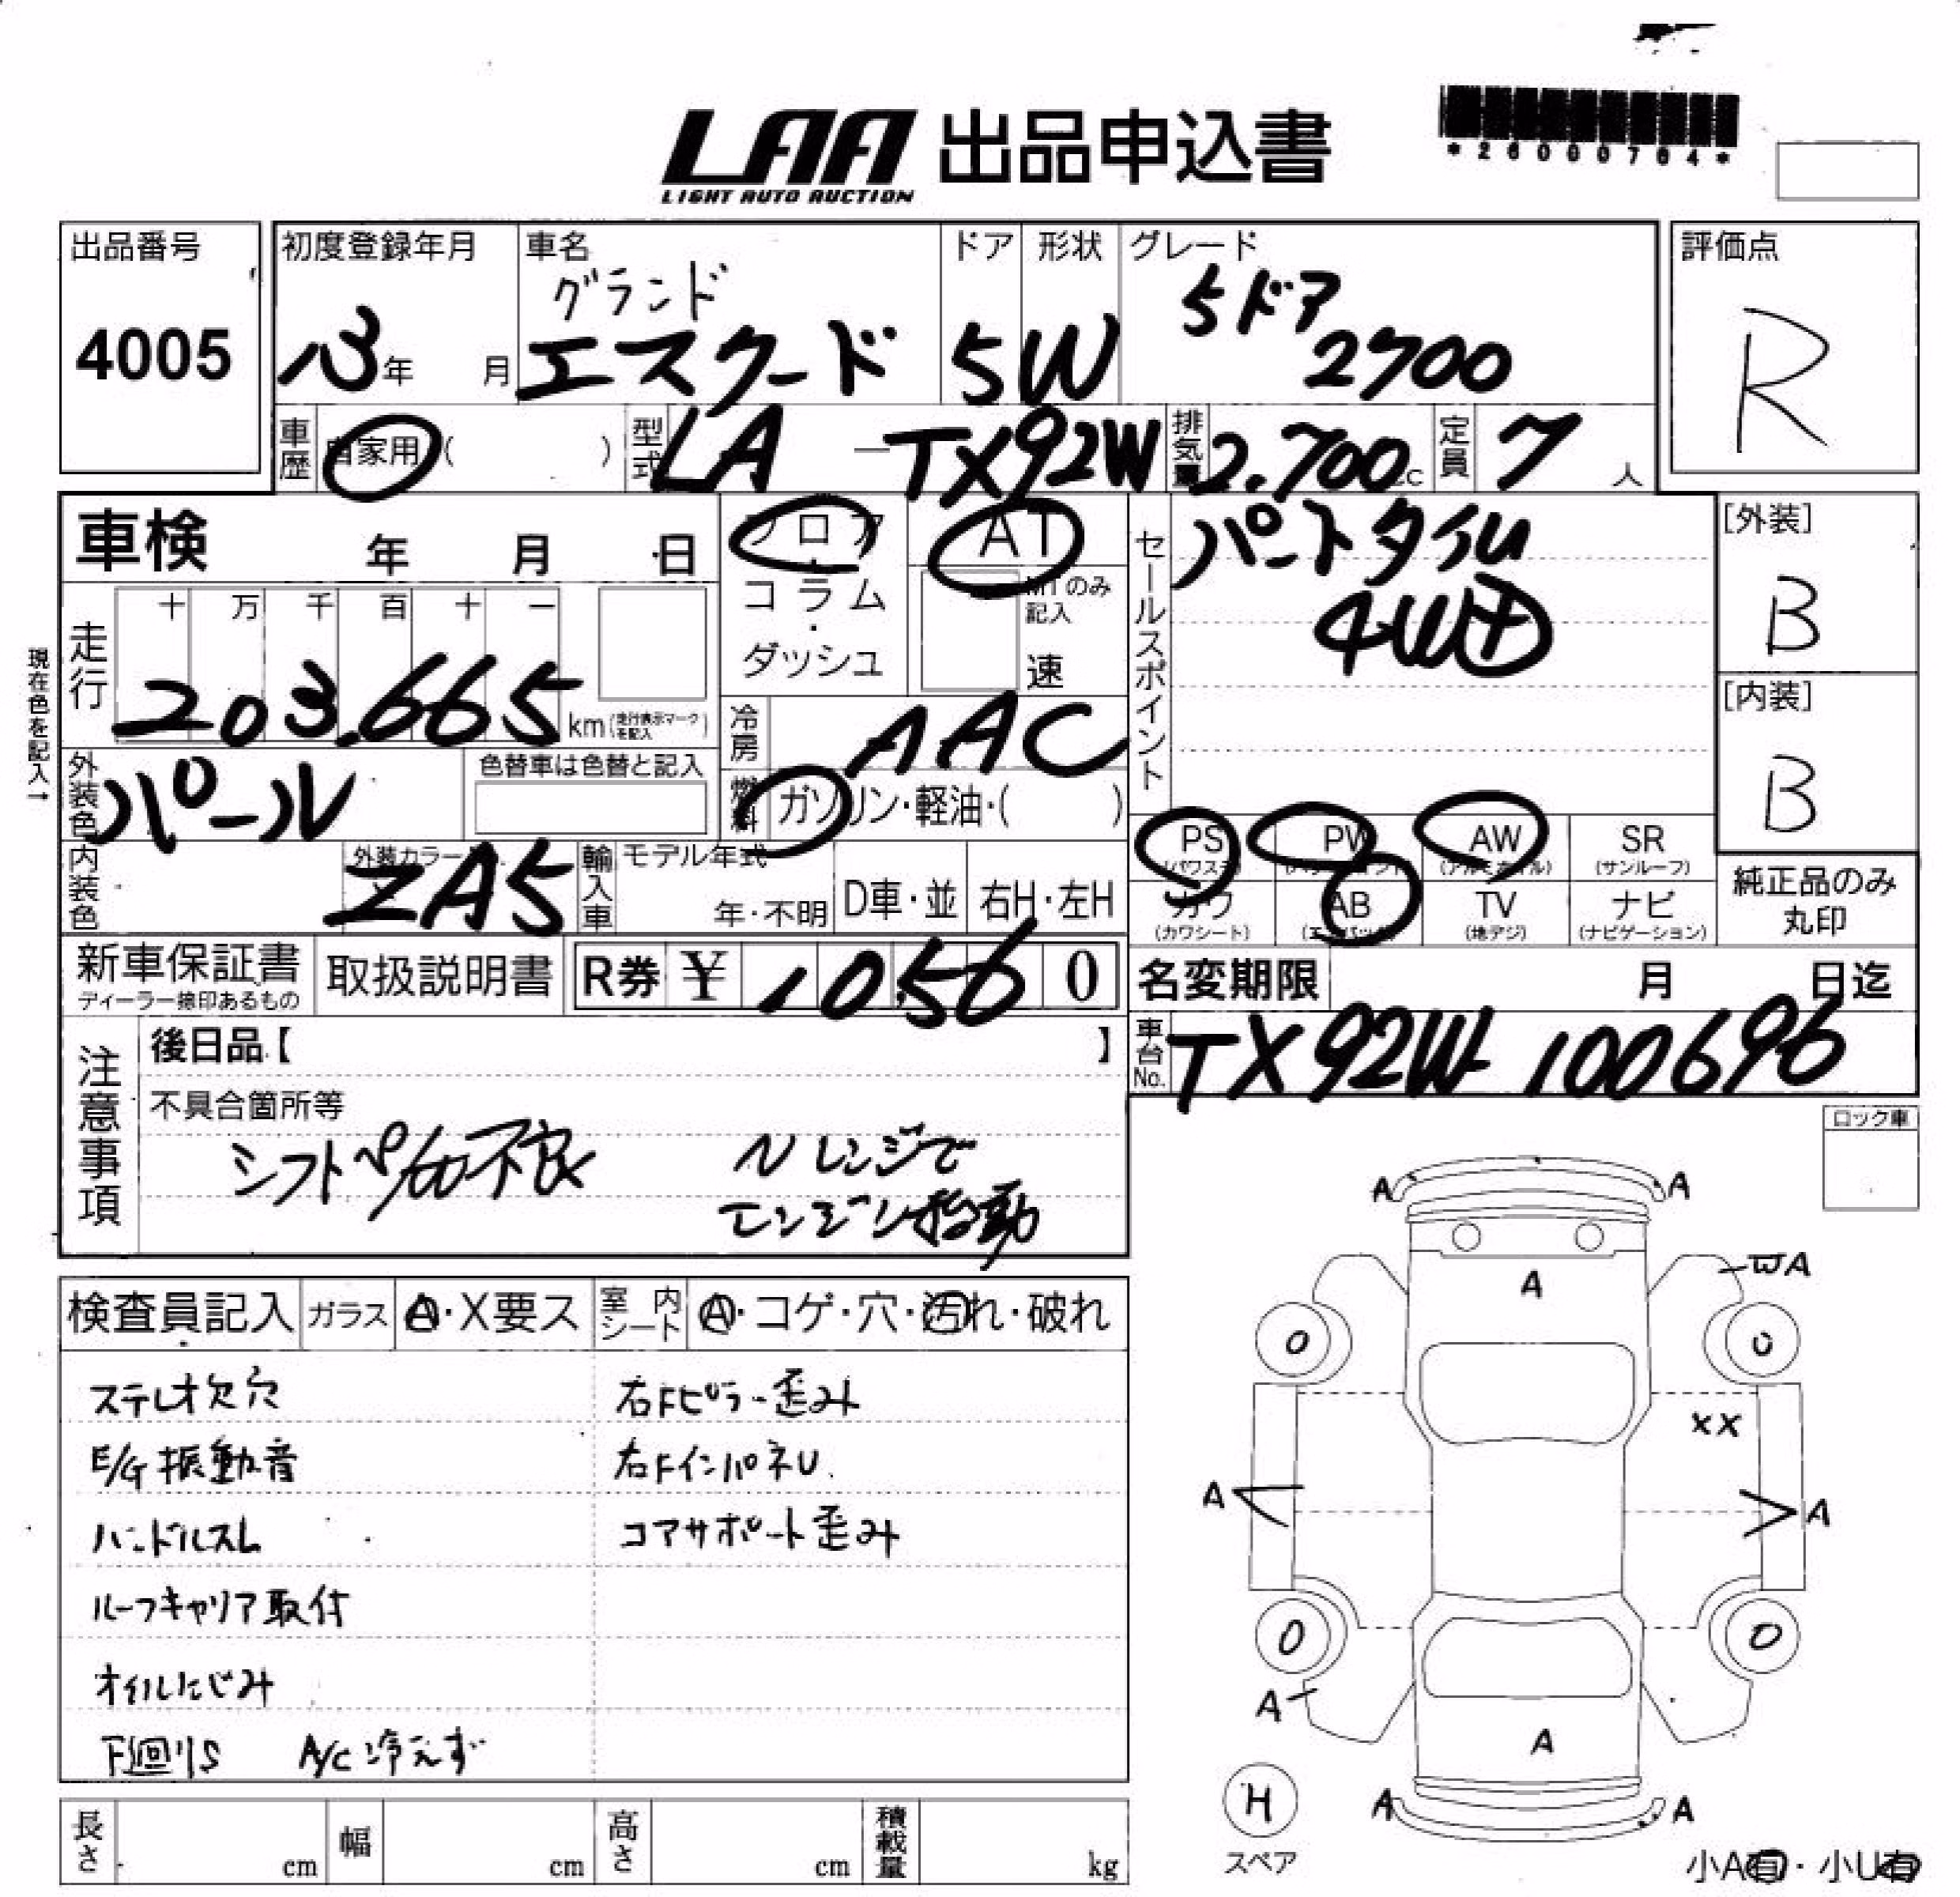 LAA 出品申込書
LIGHT AUTO AUCTION
*26000764*
出品番号
4005
初度登録年月
13年 月
車名
グランド
エスクード
ドア
5
形状
W
グレード
5ドア
2700
評価点
R
車歴 自家用 ( )
型式 LA-TX92W
排気量 2.700cc
定員 7人
車検 年 月 日
フロア・コラム・ダッシュ
AT
MTのみ記入
速
セールスポイント
パートタイム
4WD
[外装]
B
[内装]
B
現在色を記入→
走行 十 万 千 百 十 一
203,665 km(走行表示マークを記入)
冷房 AAC
外装色 パール
色替車は色替と記入
燃料 ガソリン・軽油・( )
内装色
外装カラーNo.
ZA5
輸入車 モデル年式
年・不明
D車・並
右H・左H
PS (パワステ)
PW
AW
SR (サンルーフ)
カワ (カワシート)
AB
TV (地デジ)
ナビ (ナビゲーション)
純正品のみ
丸印
新車保証書
ディーラー捺印あるもの
取扱説明書
R券 ¥ 10,560
名変期限 月 日迄
車台No. TX92W-100696
注意事項
後日品【 】
不具合箇所等
シフトペダル不良
Nレンジで
エンジン始動
ロック車
検査員記入
ガラス A・X要ス
室内シート A・コゲ・穴・汚れ・破れ
ステレオ欠穴
右Fピラー歪み
E/G振動音
右FインパネU
ハンドルスレ
コアサポート歪み
ルーフキャリア取付
オイルにじみ
下廻りS A/C冷えず
長さ cm
幅 cm
高さ cm
積載量 kg
A A
A
A
0 0
XX
A A
0 0
A
A
H
スペア
A A
小A有・小U有